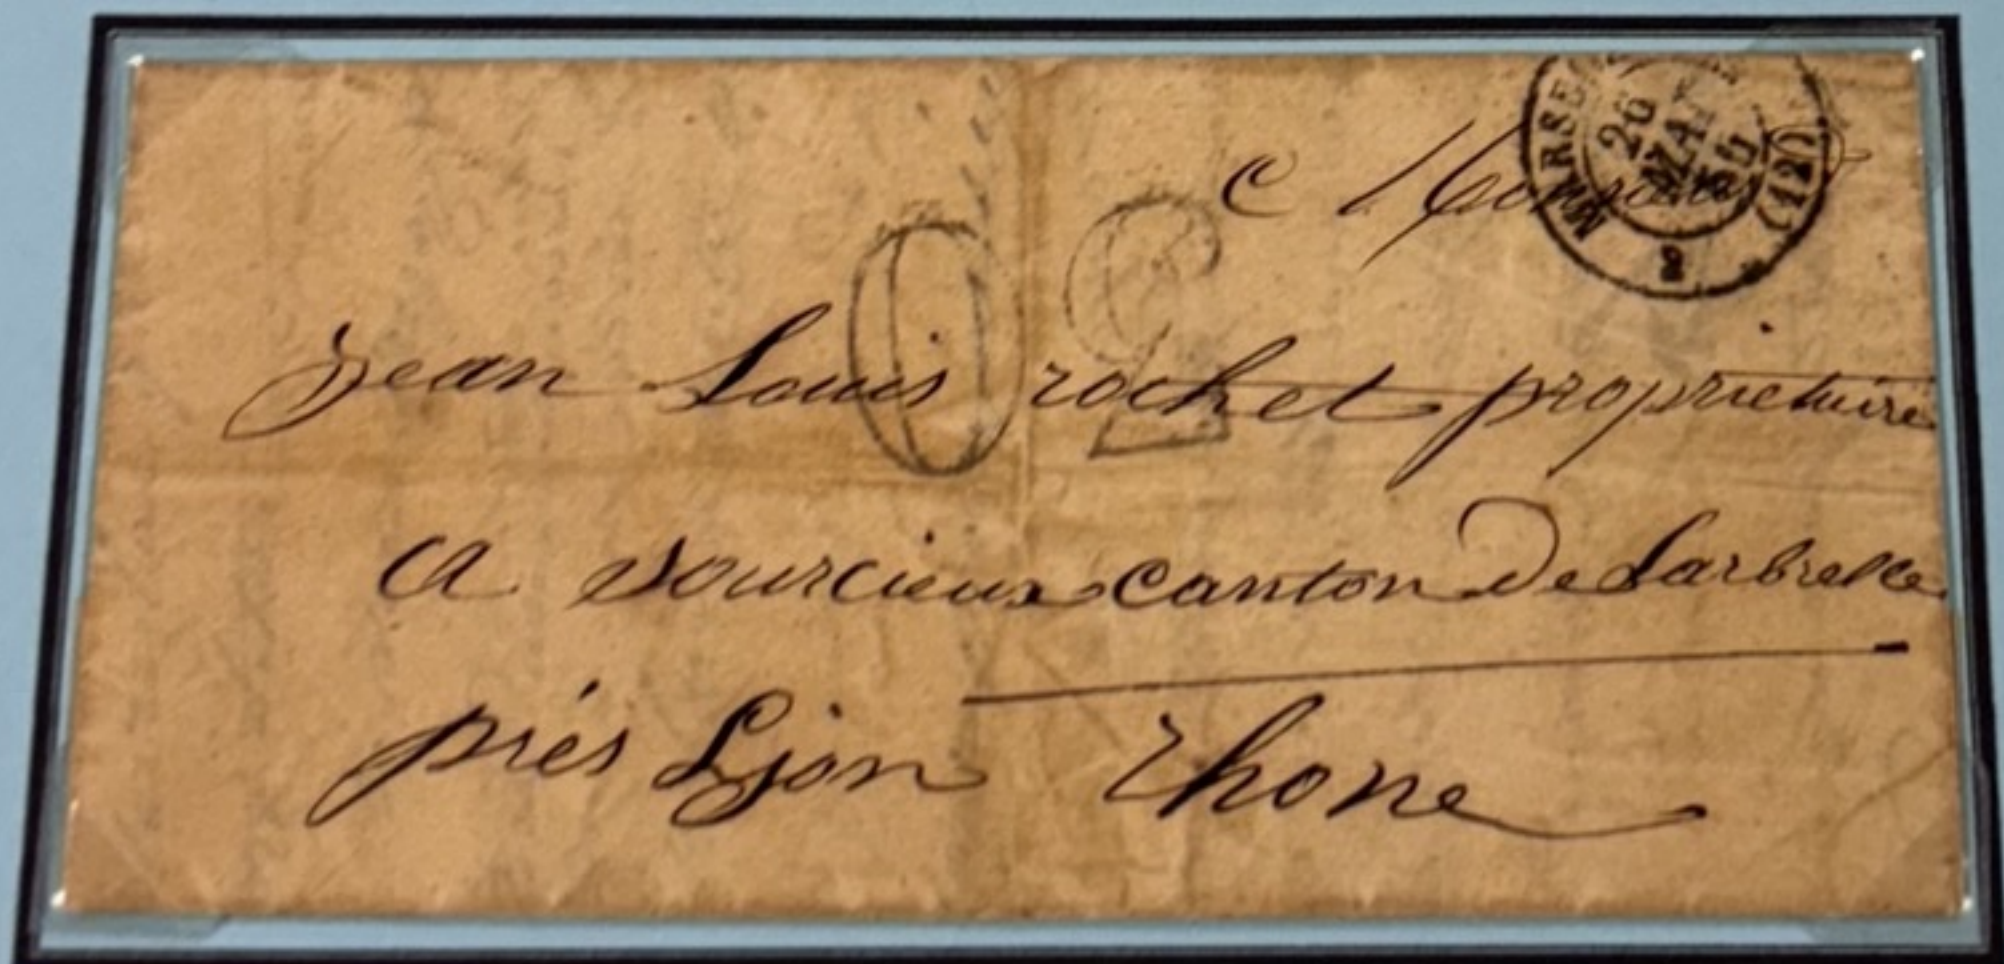 MARSEI
26
MAI
(12)
2
a Monsieur
jean Louis rochet proprietaire
a sourcieux canton De Larbresle
prés Lyon rhone